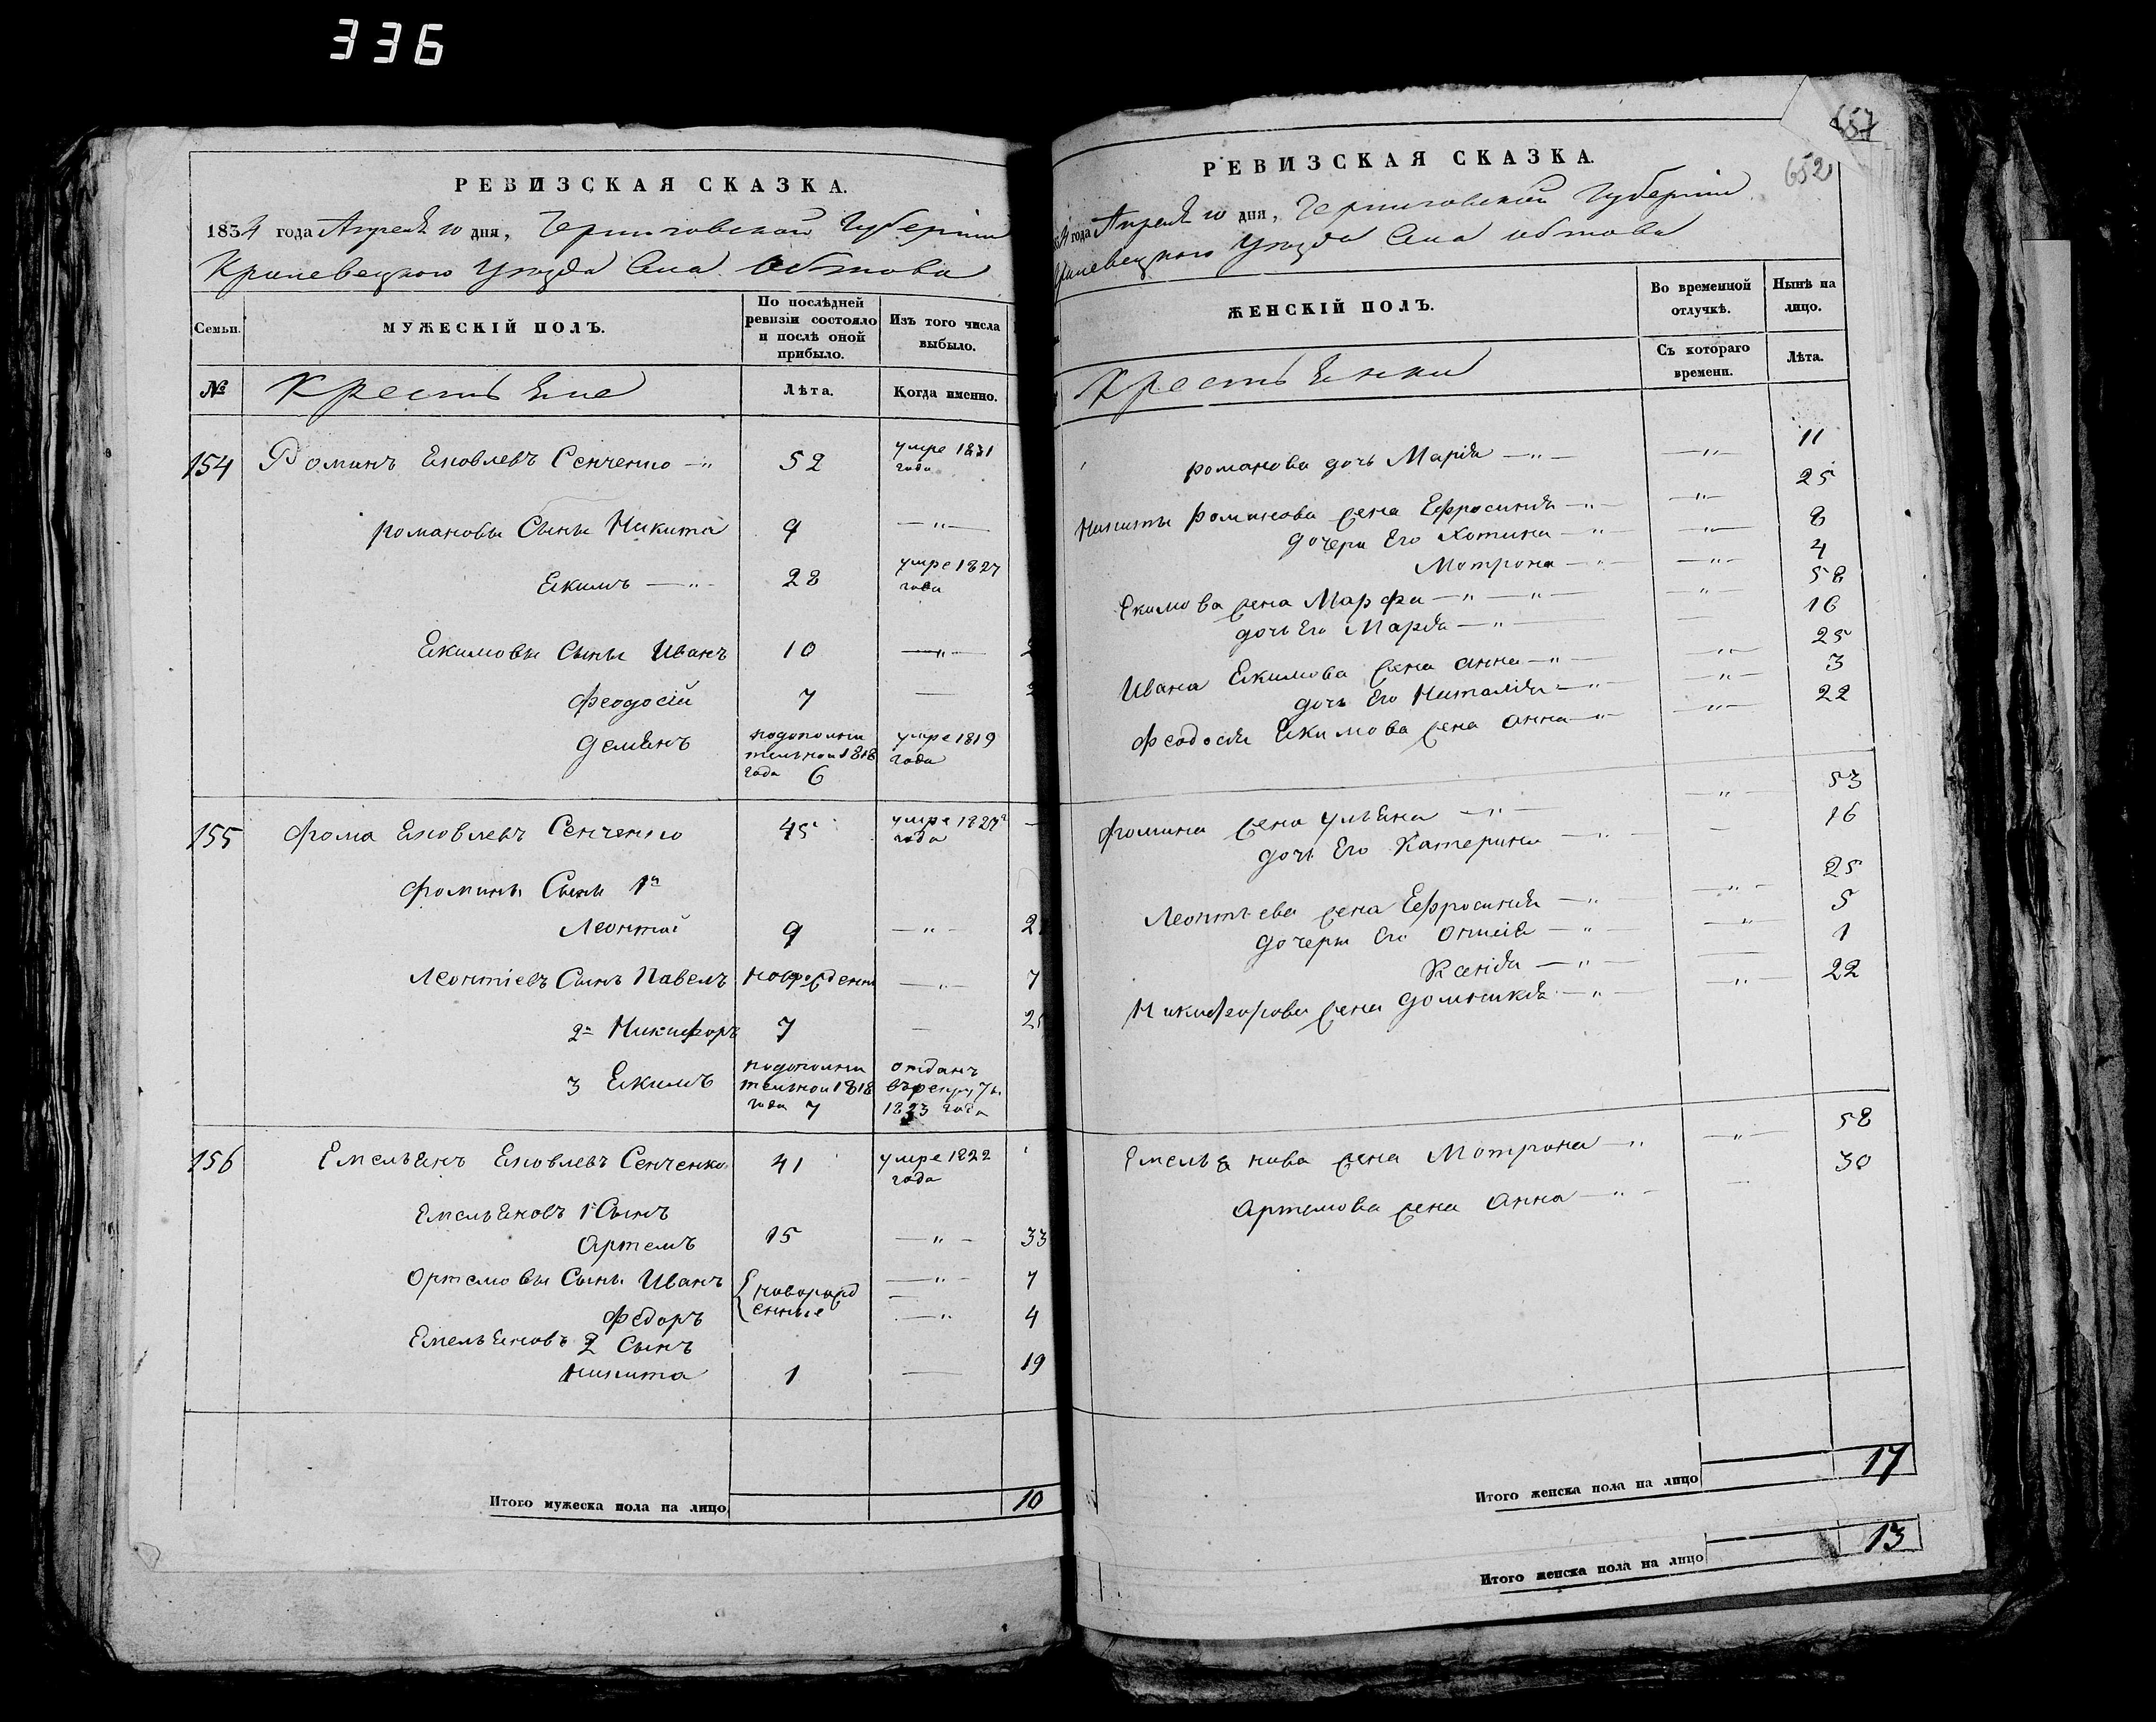 336
РЕВИЗСКАЯ СКАЗКА.
1834 года Апреля 10 дня, Черниговской Губернии
Кролевецкого Уезда Села Обтова
Семьи. МУЖЕСКІЙ ПОЛЪ. По послѣдней ревизіи состояло и послѣ оной прибыло. Изъ того числа выбыло.
№ Крестьяне Лѣта. Когда именно.
154 Романъ Яковлевъ Сенченко —"— 52 умре 1831 года
романовы Сыны Никита 9 —"—
Екимъ —"— 28 умре 1827 года
Екимовы Сыны Иванъ 10 —"—
Феодосій 7 —
Демянъ подополнительной 1818 года 6 умре 1819 года
155 Фома Яковлевъ Сенченко 45 умре 1827 года
Фомины Сыны 1й
Леонтій 9 —"—
Леонтіевъ Сынъ Павелъ новорожденъ —"— 7
2й Никифоръ 7 —
3 Екимъ подополнительной 1818 года 7 отданъ врекруты 1823 года
156 Емельянъ Яковлевъ Сенченко 41 умре 1822 года
Емельяновъ 1й Сынъ
Артемъ 15 —"— 33
Ортемовы Сыны Иванъ новорожденные —"— 7
Федоръ —"— 4
Емельяновъ 2 Сынъ
Никита 1 — 19
Итого мужеска пола на лицо 10
657
652
РЕВИЗСКАЯ СКАЗКА.
4 года Апреля 10 дня, Черниговской Губернии
Кролевецкого Уезда Села Обтова
ЖЕНСКІЙ ПОЛЪ. Во временной отлучкѣ. Нынѣ на лицо.
Крестьянки Съ котораго времени. Лѣта.
романова дочь Марія —"— —"— 11
Никиты Романова жена Ефросинія —"— —"— 25
дочери Его Хотина —"— —"— 8
Мотрона —"— —"— 4
Екимова жена Марфа —"— —"— —"— 58
дочь Его Марія —"— — 16
Ивана Екимова жена анна —"— —"— 25
дочь Его Наталія —"— —"— 3
Феодосія Екимова жена анна —"— —"— 22
Фомина жена ульяна —"— —"— 53
дочь Его Катерина —"— — 16
Леонтьева жена Ефросинія —"— —"— 25
дочери Его —"— —"— 5
Ксенія —"— — 1
Никифорова жена домникія —"— —"— 22
Емельянова жена Мотрона —"— —"— 58
Артемова жена Анна —"— — 30
Итого женска пола на лицо 17
Итого женска пола на лицо 13